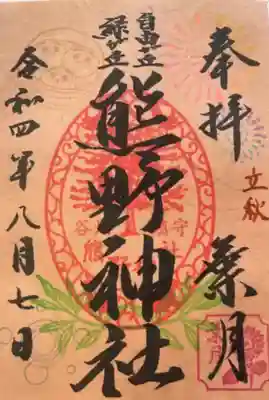 奉拝
立秋
葉月
自由が丘
緑が丘
熊野神社
令和四年八月七日